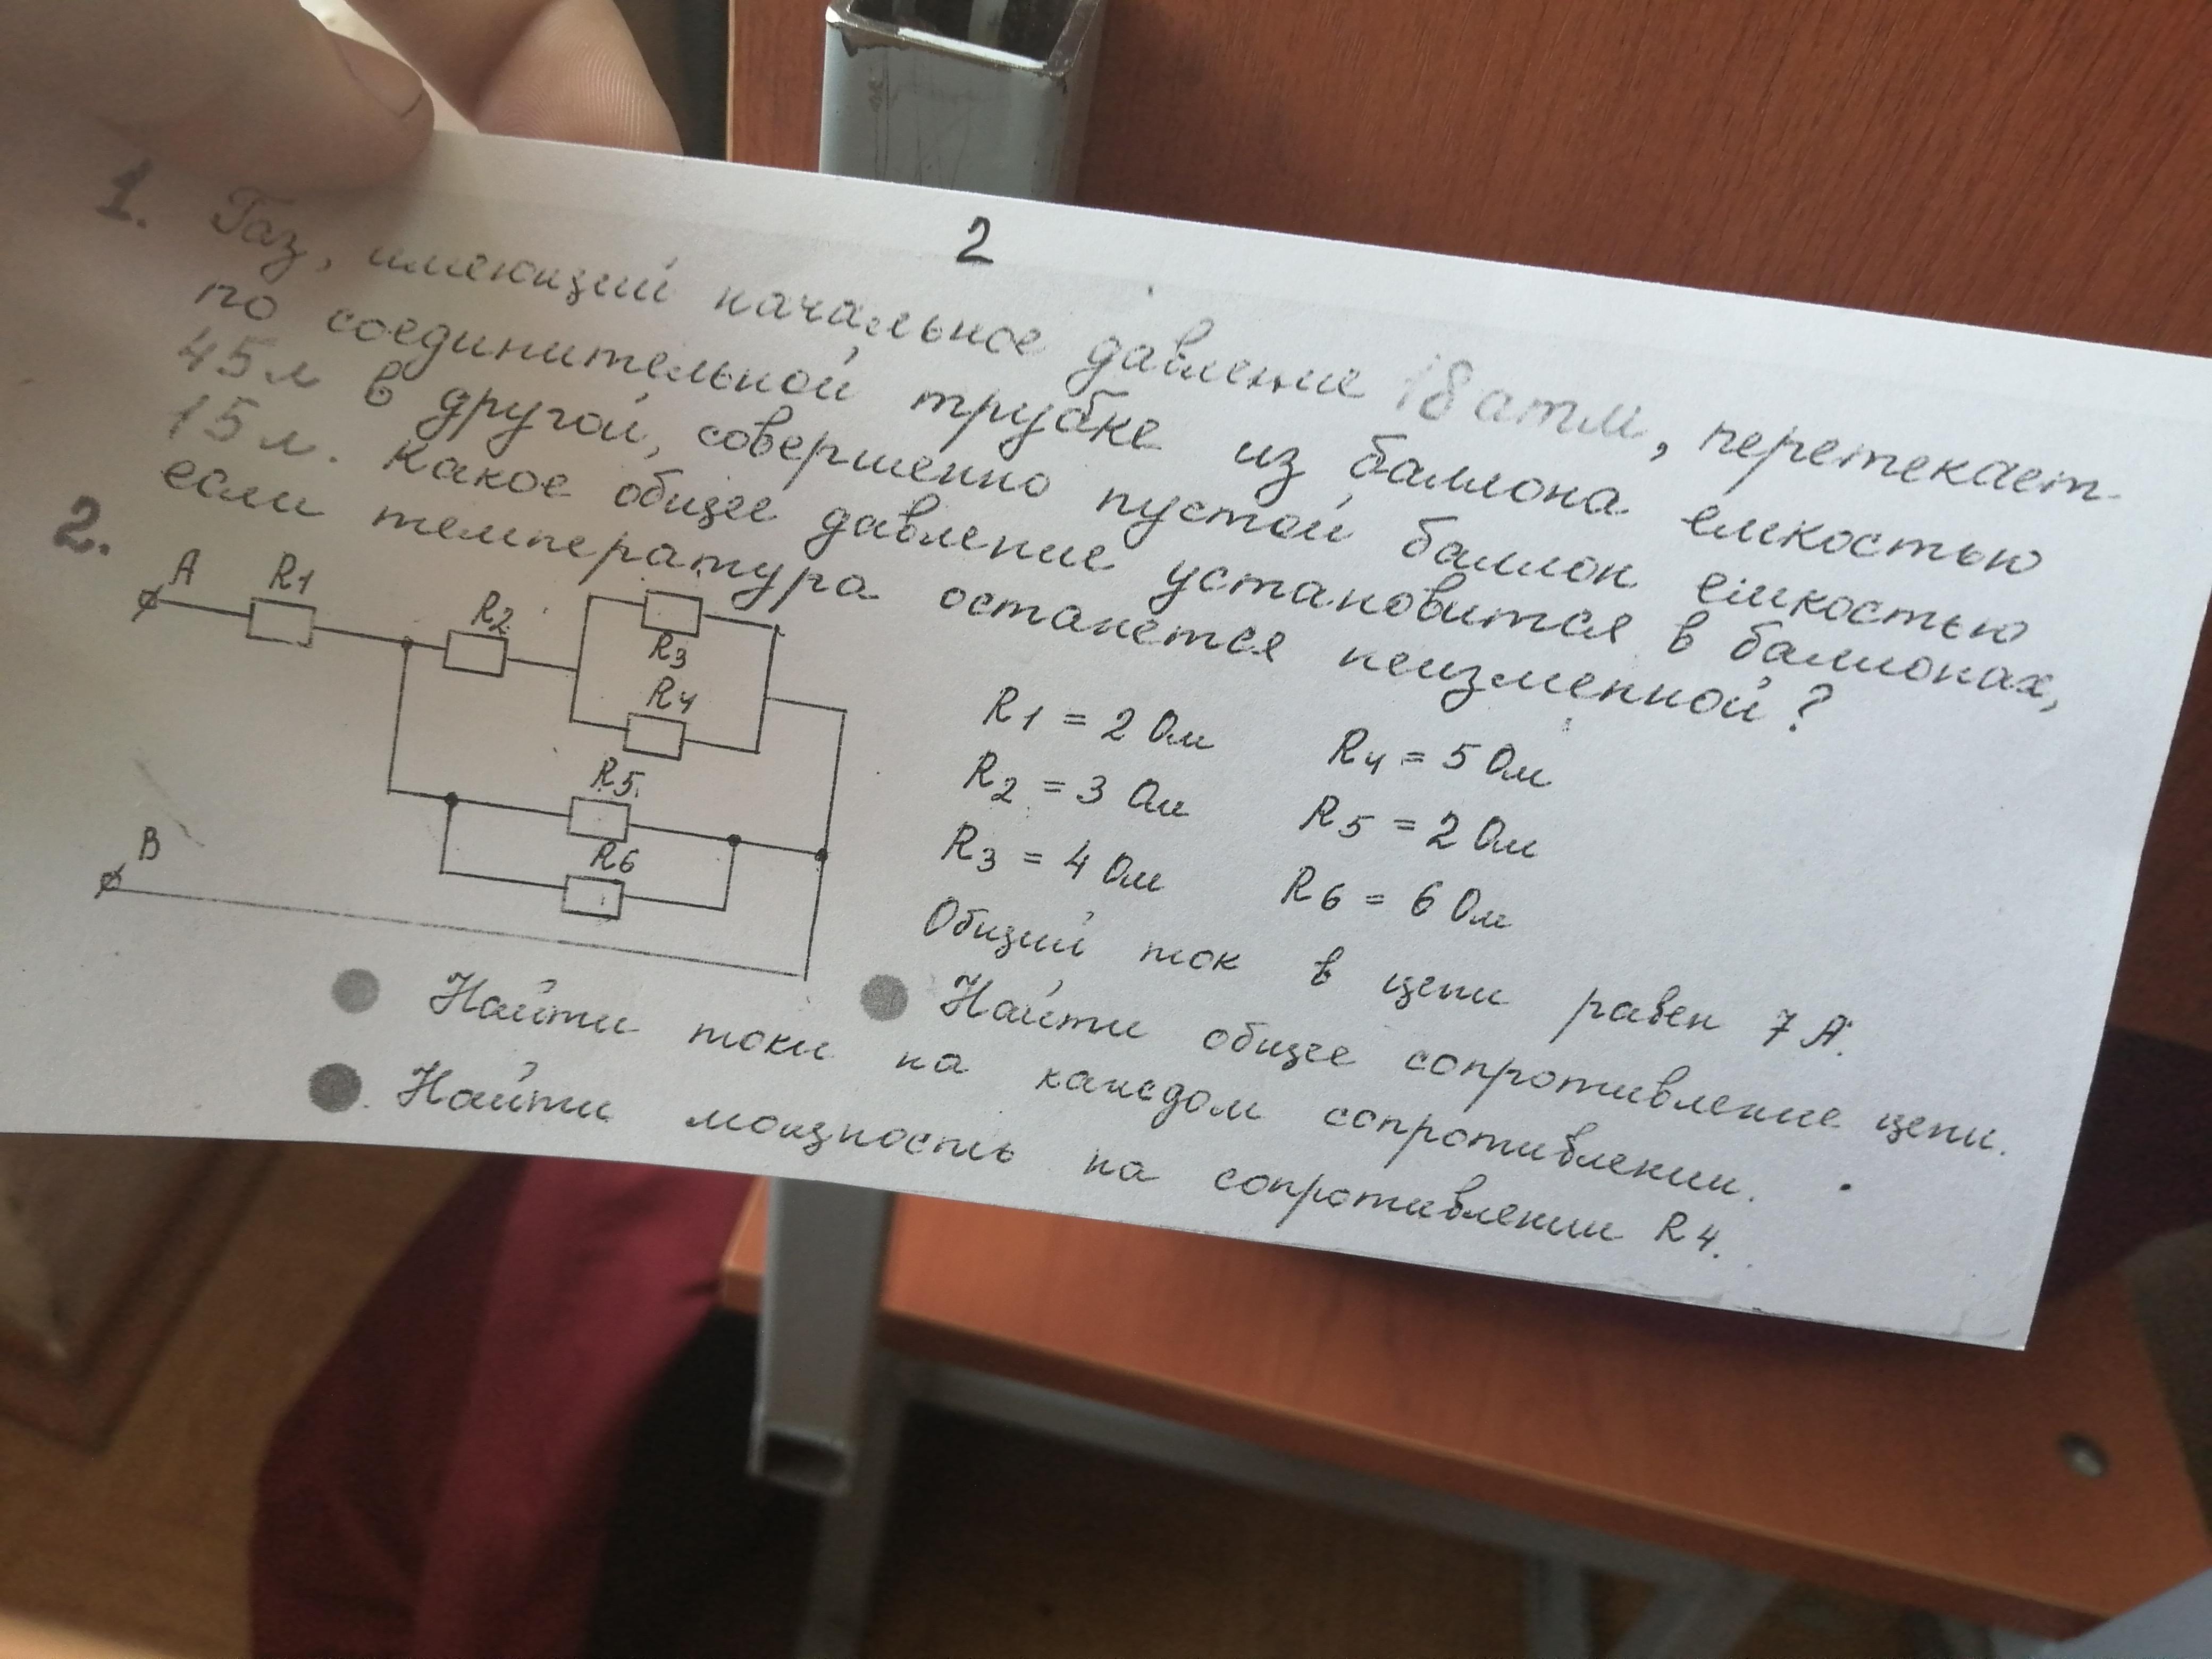 2
1. Газ, имеющий начальное давление 18 атм, перетекает
по соединительной трубке из баллона емкостью
45 л в другой, совершенно пустой баллон емкостью
15 л. Какое общее давление установится в баллонах,
если температура останется неизменной?
2.
A R1 R2 R3
R4
R5
R6
B
R1 = 2 Ом R4 = 5 Ом
R2 = 3 Ом R5 = 2 Ом
R3 = 4 Ом R6 = 6 Ом
Общий ток в цепи равен 7 А.
Найти общее сопротивление цепи.
Найти токи на каждом сопротивлении.
Найти мощность на сопротивлении R4.